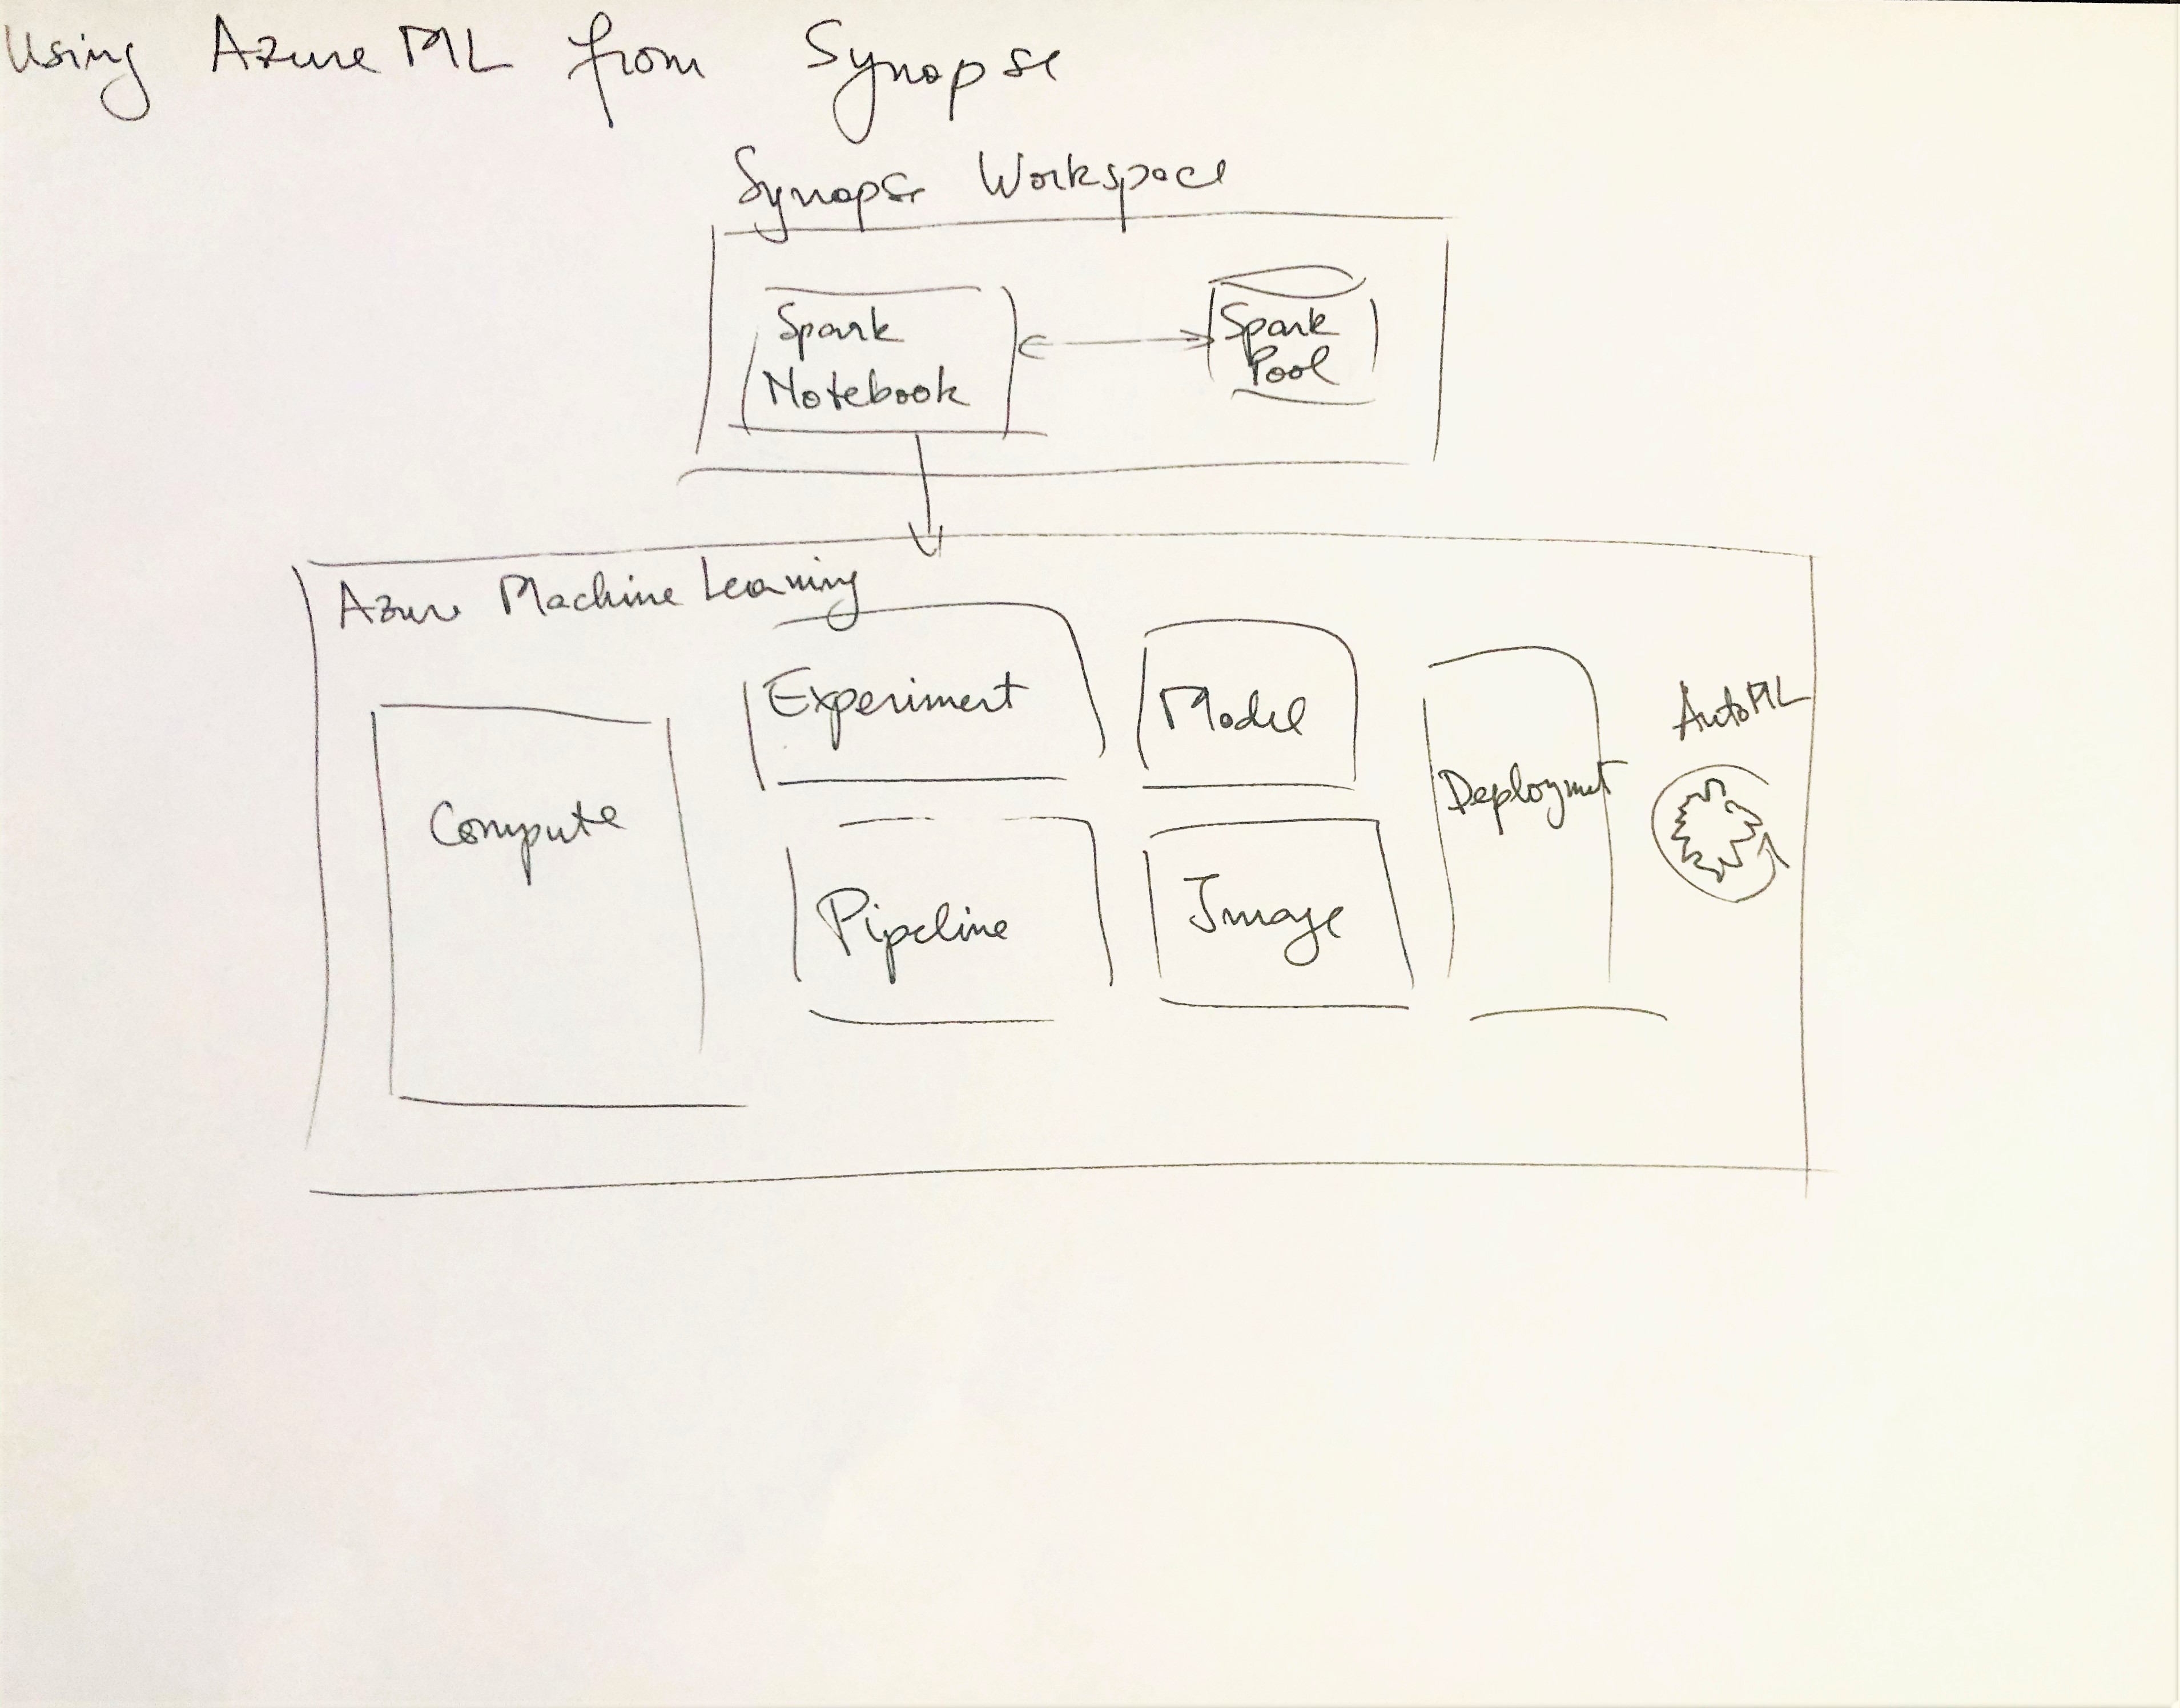 Using Azure ML from Synapse
Synapse Workspace
Spark
Notebook
Spark
Pool
Azure Machine Learning
Compute
Experiment
Pipeline
Model
Image
Deployment
AutoML